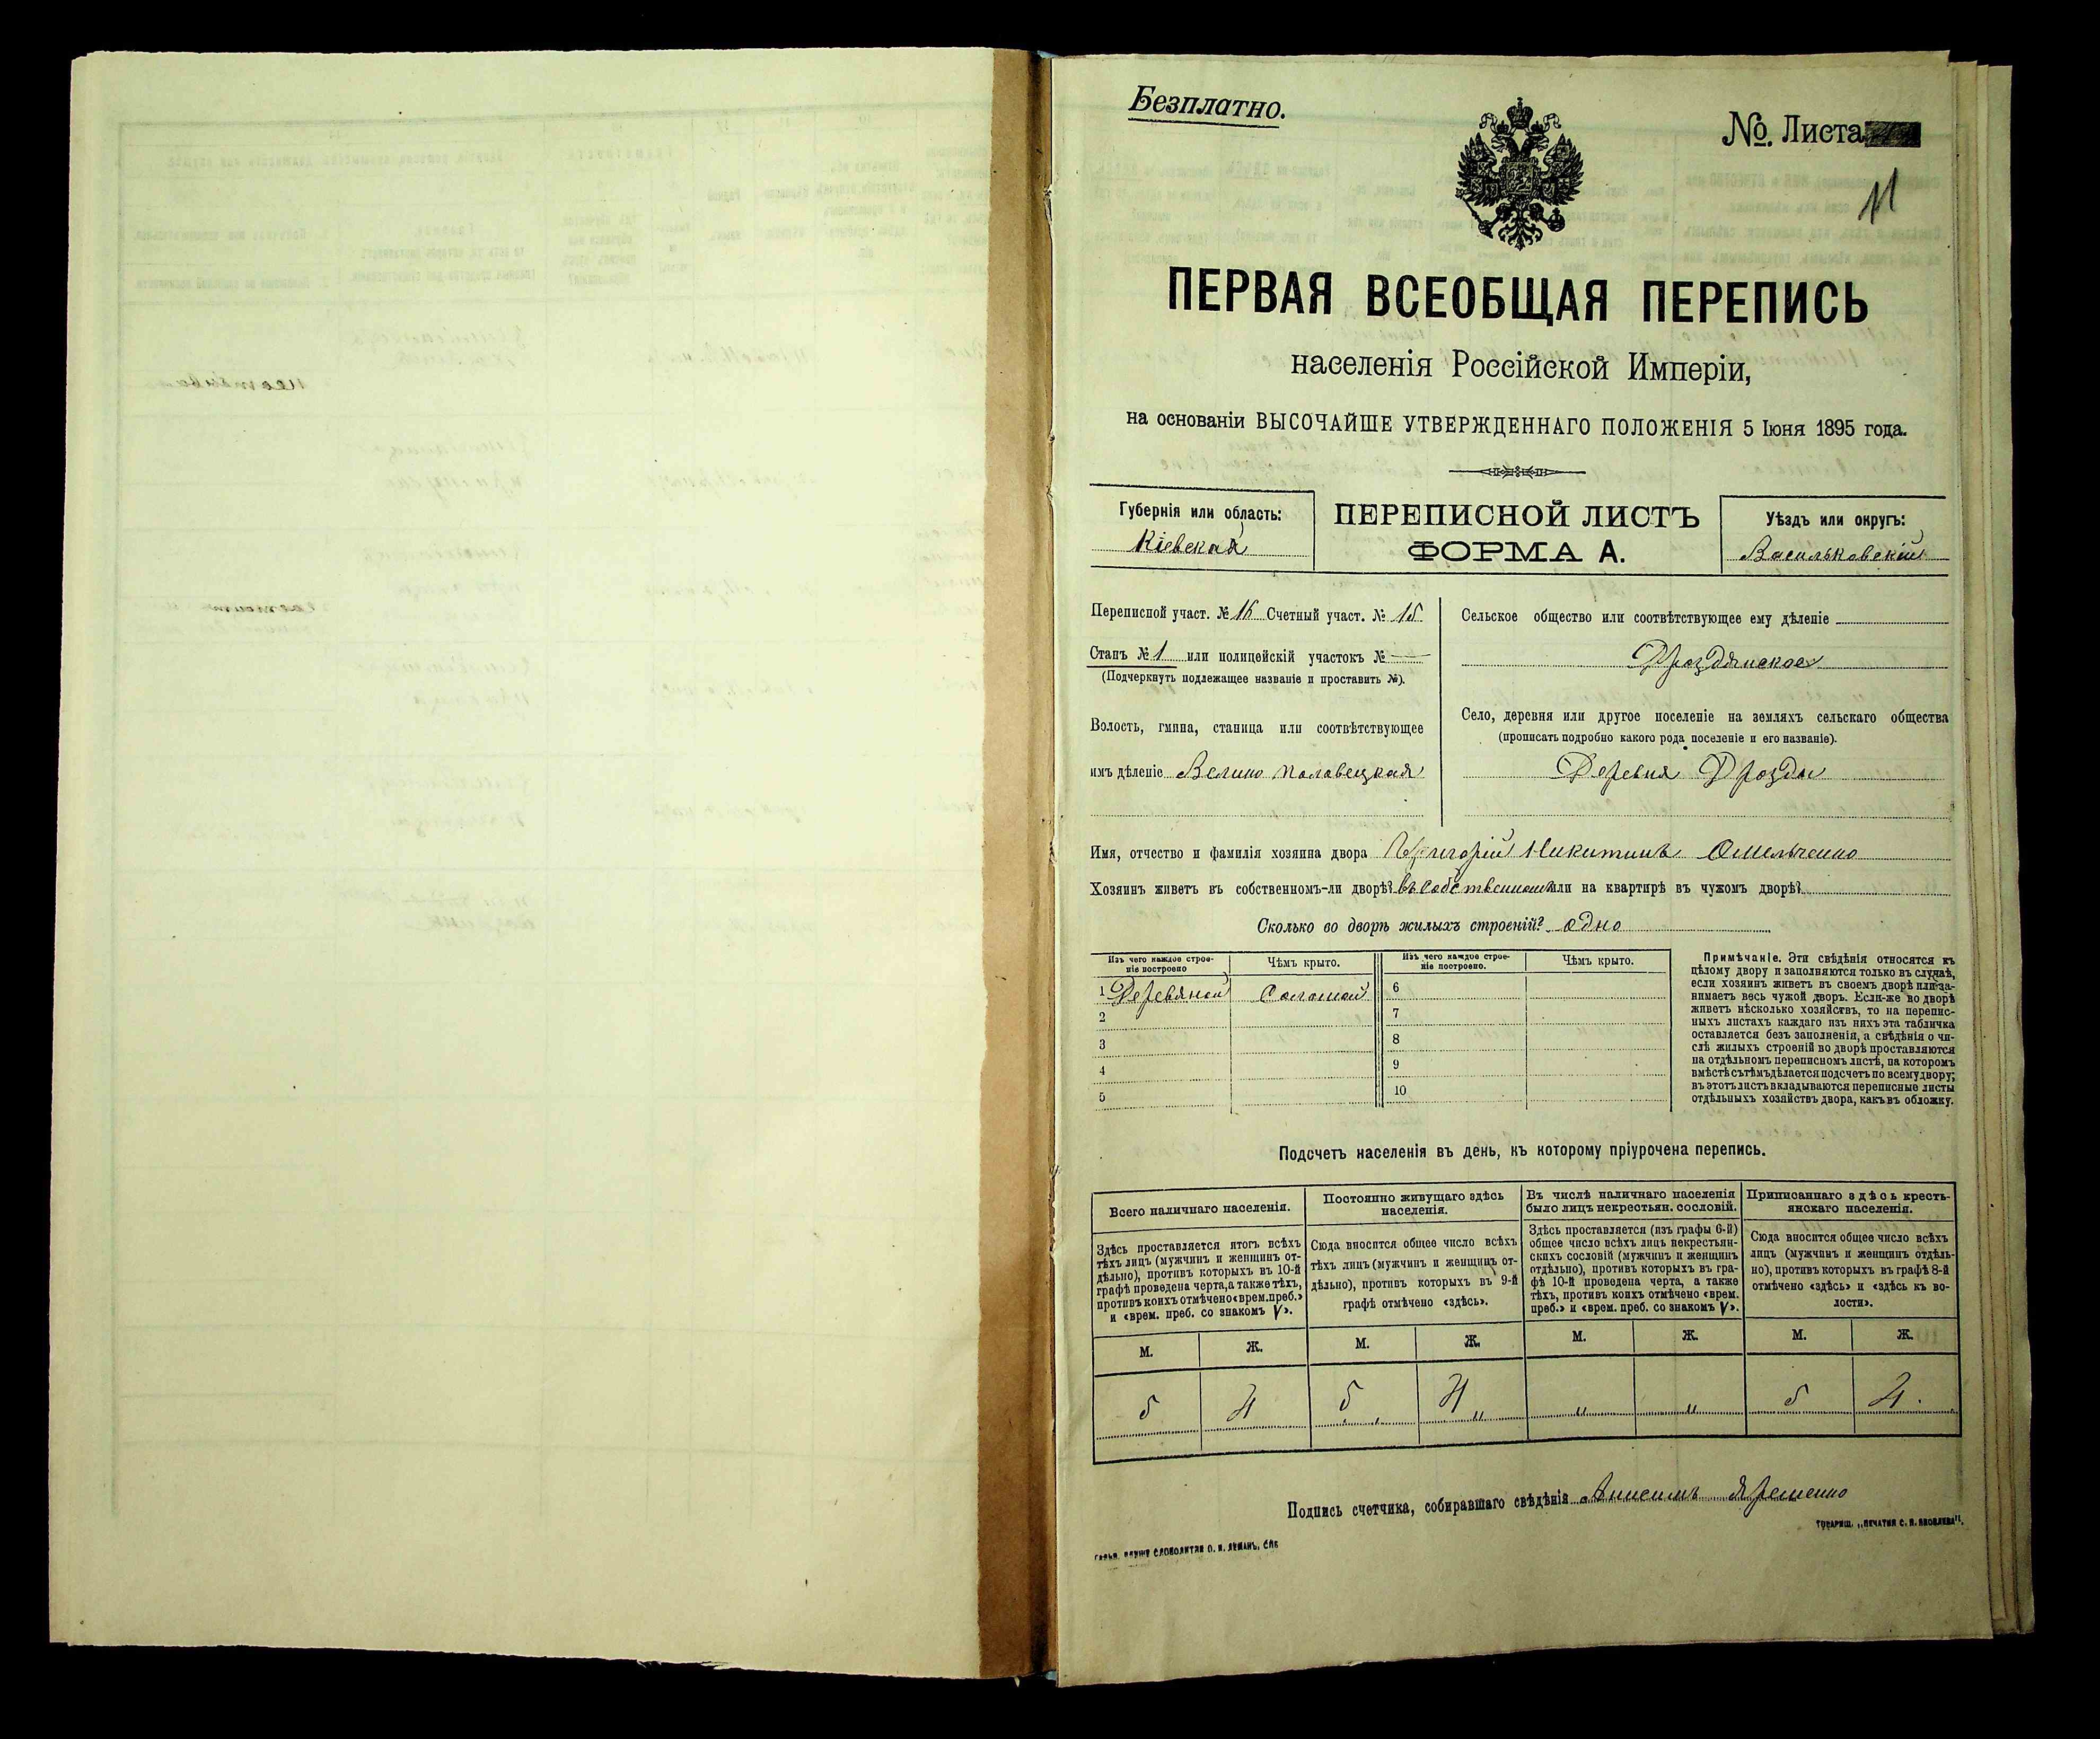 Безплатно.
№. Листа
11
ПЕРВАЯ ВСЕОБЩАЯ ПЕРЕПИСЬ
населенія Россійской Имперіи,
на основаніи ВЫСОЧАЙШЕ УТВЕРЖДЕННАГО ПОЛОЖЕНІЯ 5 Іюня 1895 года.
Губернія или область:
Кіевская
ПЕРЕПИСНОЙ ЛИСТЪ
ФОРМА А.
Уѣздъ или округъ:
Васильковскій
Переписной участ. № 16 Счетный участ. № 15
Станъ № 1 или полицейскій участокъ № —
(Подчеркнуть подлежащее названіе и проставить №).
Волость, гмина, станица или соотвѣтствующее
имъ дѣленіе Велико Половецкая
Сельское общество или соотвѣтствующее ему дѣленіе
Дроздянское
Село, деревня или другое поселеніе на земляхъ сельскаго общества
(прописать подробно какого рода поселеніе и его названіе).
Деревня Дрозды
Имя, отчество и фамилія хозяина двора Григорій Никитинъ Омельченко
Хозяинъ живетъ въ собственномъ-ли дворѣ? въ собственномъ или на квартирѣ въ чужомъ дворѣ?
Сколько во дворѣ жилыхъ строеній? одно
Изъ чего каждое строе-
ніе построено
Чѣмъ крыто.
Изъ чего каждое строе-
ніе построено.
Чѣмъ крыто.
1 Деревяной Соломой
2
3
4
5
6
7
8
9
10
Примѣчаніе. Эти свѣдѣнія относятся къ
цѣлому двору и заполняются только въ случаѣ,
если хозяинъ живетъ въ своемъ дворѣ или за-
нимаетъ весь чужой дворъ. Если-же во дворѣ
живетъ нѣсколько хозяйствъ, то на перепис-
ныхъ листахъ каждаго изъ нихъ эта табличка
оставляется безъ заполненія, а свѣдѣнія о чи-
слѣ жилыхъ строеній во дворѣ проставляются
на отдѣльномъ переписномъ листѣ, на которомъ
вмѣстѣ съ тѣмъ дѣлается подсчетъ по всему двору;
въ этотъ листъ вкладываются переписные листы
отдѣльныхъ хозяйствъ двора, какъ въ обложку.
Подсчетъ населенія въ день, къ которому пріурочена перепись.
Всего наличнаго населенія.
Здѣсь проставляется итогъ всѣхъ
тѣхъ лицъ (мужчинъ и женщинъ от-
дѣльно), противъ которыхъ въ 10-й
графѣ проведена черта, а также тѣхъ,
противъ коихъ отмѣчено «врем. преб.»
и «врем. преб. со знакомъ V».
Постоянно живущаго здѣсь
населенія.
Сюда вносится общее число всѣхъ
тѣхъ лицъ (мужчинъ и женщинъ от-
дѣльно), противъ которыхъ въ 9-й
графѣ отмѣчено «здѣсь».
Въ числѣ наличнаго населенія
было лицъ некрестьян. сословій.
Здѣсь проставляется (изъ графы 6-й)
общее число всѣхъ лицъ некрестьян-
скихъ сословій (мужчинъ и женщинъ
отдѣльно), противъ которыхъ въ гра-
фѣ 10-й проведена черта, а также
тѣхъ, противъ коихъ отмѣчено «врем.
преб.» и «врем. преб. со знакомъ V».
Приписаннаго здѣсь кресть-
янскаго населенія.
Сюда вносится общее число всѣхъ
лицъ (мужчинъ и женщинъ отдѣль-
но), противъ которыхъ въ графѣ 8-й
отмѣчено «здѣсь» и «здѣсь къ во-
лости».
М. Ж. М. Ж. М. Ж. М. Ж.
5 4 5 „ 4 „ „ „ 5 4.
Подпись счетчика, собиравшаго свѣдѣнія Анисимъ Яременко
ТОВАРИЩ. „ПЕЧАТНЯ С. П. ЯКОВЛЕВА".